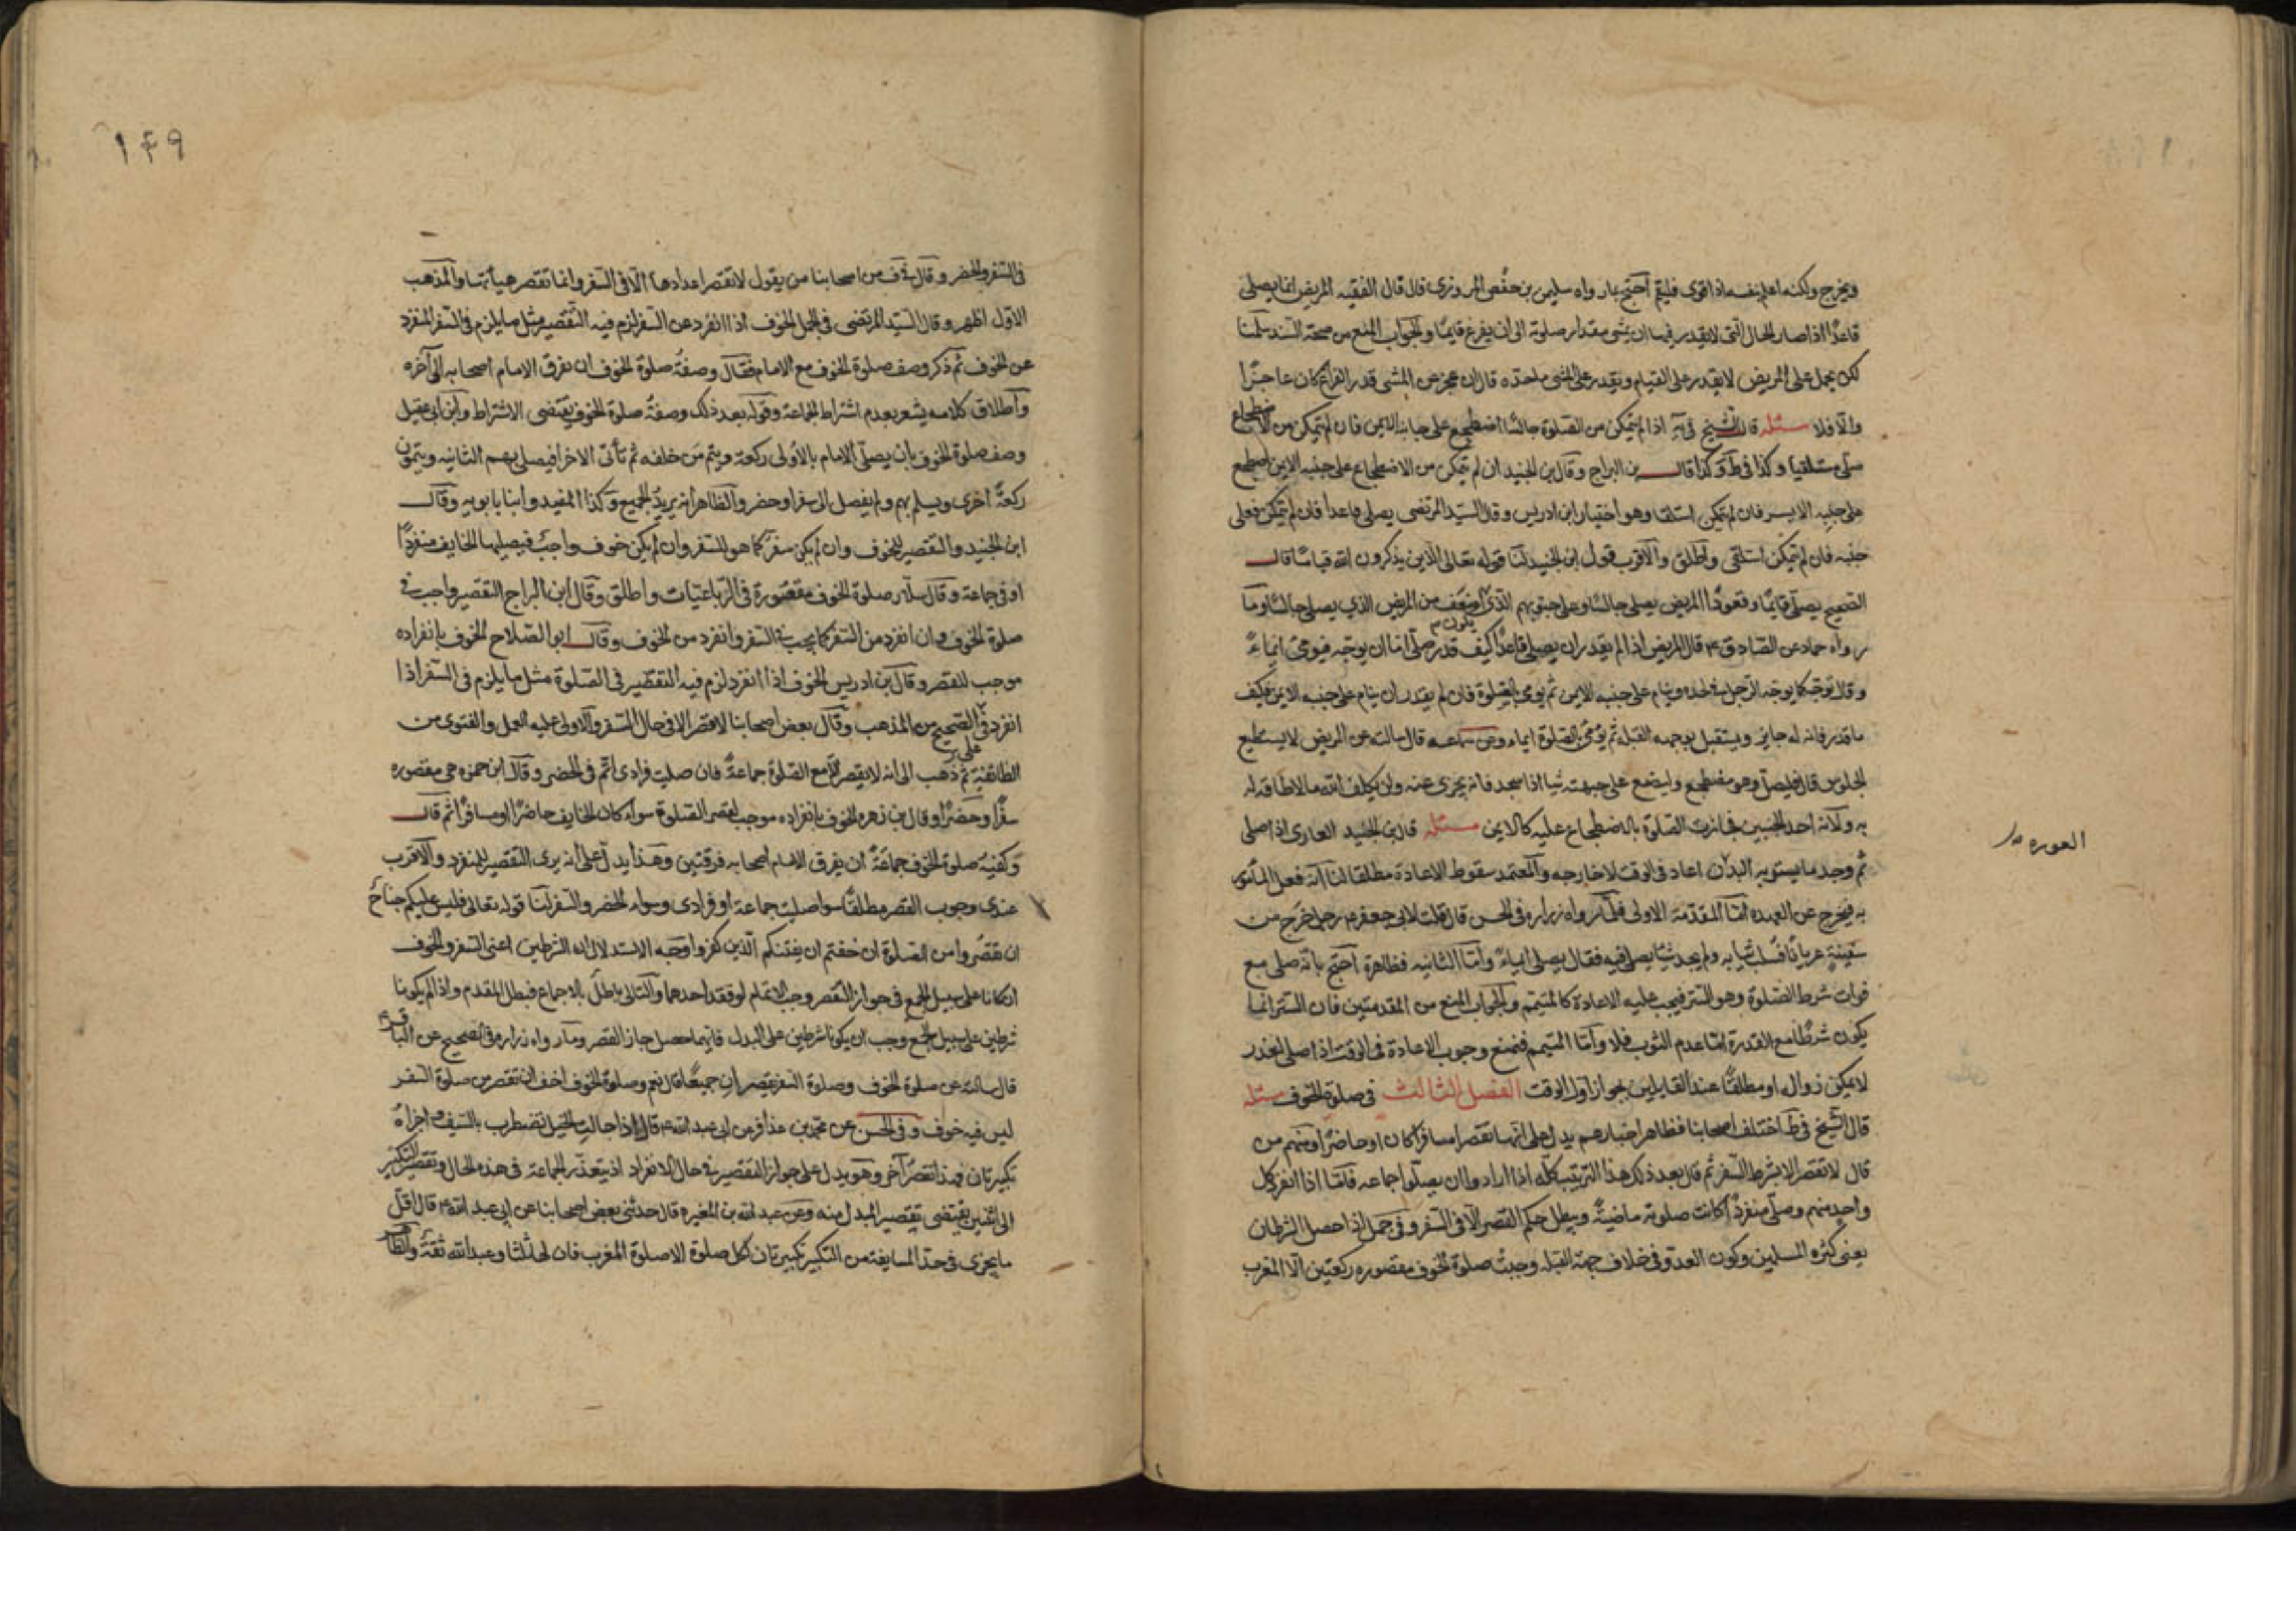 ويخرج ولكنه اعلم بنفسه اذا قوى فليقم احتج بما رواه سليمن بن حفص المروزى قال قال الفقيه المريض انما يصلى
قاعدًا اذا صار بالحال التى لا يقدر فيها ان يمشى مقدار صلوته الى ان يفرغ قايمًا والجواب المنع من صحة السند سلمنا
لكن يحمل على المريض لا يقدر على القيام ويقدر على المشى ما حده قال ان عجز عن المشى قدر الفراغ كان عاجزًا
والا فلا مسئله قال الشيخ فى يه اذا لم يتمكن من الصلوة جالسًا اضطجع على جانبه الايمن فان لم يتمكن من الاضطجاع
صلى مستلقيا وكذا فى ط وكذا قال بن البراج وقال بن الجنيد ان لم يتمكن من الاضطجاع على جنبه الايمن اضطجع
على جنبه الايسر فان لم يتمكن استلقا وهو اختيار ابن ادريس وقال السيد المرتضى يصلى قاعدا فان لم يتمكن فعلى
جنبه فان لم يتمكن استلقى واطلق والاقرب قول ابن الجنيد لنا قوله تعالى الذين يذكرون الله قيامًا قال
الصحيح يصلى قايمًا وقعودًا المريض يصلى جالسًا وعلى جنوبهم الذى يكون اضعف من المريض الذي يصلى جالسًا وما
رواه حماد عن الصادق ع قال المريض اذا لم يقدر ان يصلى قاعدًا كيف قدر صلى اما ان يوجه فيومئ ايماءً
وقال يوجه كما يوجه الرجل فى لحده وينام على جنبه الايمن ثم يومى بالصلوة فان لم يقدر ان ينام على جنبه الايمن فكيف
ما قدر فانه له جايز ويستقبل بوجهه القبلة ثم يومئ بالصلوة ايماء وعن سماعه قال سالته عن المريض لا يستطيع
الجلوس قال فليصل وهو مضطجع وليضع على جبهته شيا اذا سجد فانه يجزى عنه ولن يكلف الله ما لا طاقة له
به ولانه احد الجنبين فجازت الصلوة بالاضطجاع عليه كالايمن مسئله قال بن الجنيد العارى اذا صلى
ثم وجد ما يستر به البدن اعاد فى الوقت لا خارجه والمعتمد سقوط الاعادة مطلقا لنا انه فعل المأمور
العوره
به فيخرج عن العهده اما المقدمة الاولى فلما رواه زراره فى الحسن قال قلت لابى جعفر ع رجل خرج من
سفينةٍ عريانًا او سلب ثيابه ولم يجد شيئًا يصلى فيه فقال يصلى ايماءً واما الثانيه فظاهرة احتج بانه صلى مع
فوات شرط الصلوة وهو الستر فيجب عليه الاعادة كالمتيمم والجواب المنع من المقدمتين فان الستر انما
يكون شرطًا مع القدرة اما مع عدم الثوب فلا واما المتيمم فنمنع وجوب الاعادة فى الوقت اذا صلى لعذر
لا يمكن زواله او مطلقًا عند القايلين بجواز اول الوقت الفصل الثالث فى صلوة الخوف مسئله
قال الشيخ فى ط اختلف اصحابنا فظاهر اخبارهم يدل على انها تقصر مسافرًا كان او حاضرًا ومنهم من
قال لا تقصر الا بشرط السفر ثم قال بعد ذلك هذا الترتيب كله اذا ارادوا ان يصلوا جماعه فامّا اذا انفرد كل
واحد منهم وصلى منفردًا كانت صلوته ماضيةً وبطل حكم القصر الا فى السفر وفى الجمل اذا حصل الشرطان
يعنى كثرة المسلمين وكون العدو فى خلاف جهة القبلة وجبت صلوة الخوف مقصوره ركعتين الا المغرب
١٤٩
فى السفر والحضر وقال فى ف من اصحابنا من يقول لا تقصر اعدادها الّا فى السفر وانما تقصر هيأتها والمذهب
الاول اظهر وقال السيد المرتضى فى الجمل الخوف اذا انفرد عن السفر لزم فيه التقصير مثل ما يلزم فى السفر المنفرد
عن الخوف ثم ذكر وصف صلوة الخوف مع الامام فقال وصفة صلوة الخوف ان يفرق الامام اصحابه الى آخره
واطلاق كلامه يشعر بعدم اشتراط الجماعة وقوله بعد ذلك وصفة صلوة الخوف يقتضى الاشتراط وابن ابى عقيل
وصف صلوة الخوف بان يصلى الامام بالاولى ركعة ويتم من خلفه ثم تأتى الاخرا فيصلى بهم الثانيه ويتمون
ركعةً اخرى ويسلم بهم ولم يفصل الى سفر او حضر والظاهر انه يريد الجميع وكذا المفيد وابنا بابويه وقال
ابن الجنيد والتقصير للخوف وان لم يكن سفر كما هو للسفر وان لم يكن خوف واجب فيصليها الخايف منفردًا
او فى جماعة وقال سلار صلوة الخوف مقصورة فى الرباعيات واطلق وقال ابن البراج التقصير واجب فى
صلوة الخوف وان انفرد من السفر كما يجب فى السفر وانفرد من الخوف وقال ابو الصلاح الخوف بانفراده
موجب للقصر وقال بن ادريس الخوف اذا انفرد لزم فيه التقصير فى الصلوة مثل ما يلزم فى السفر اذا
انفرد على الصحيح من المذهب وقال بعض اصحابنا لا قصر الا فى حال السفر والاولى عليه العمل والفتوى من
الطائفة ثم ذهب الى انه لا يقصر الا مع الصلوة جماعة فان صليت فرادى اتم فى الحضر وقال ابن حمزه هى مقصوره
سفرًا وحضرًا وقال بن زهره الخوف بانفراده موجب لقصر الصلوة سواء كان الخايف حاضرًا او مسافرًا ثم قال
وكيفية صلوة الخوف جماعةً ان يفرق الامام اصحابه فرقتين وهذا يدل على انه يرى التقصير للمنفرد والاقرب
عندى وجوب القصر مطلقًا سوا صليت جماعة او فرادى وسواء الحضر والسفر لنا قوله تعالى فليس عليكم جناحٌ
ان تقصروا من الصلوة ان خفتم ان يفتنكم الذين كفروا وجه الاستدلال ان الشرطين اعنى السفر والخوف
ان كانا على سبيل الجمع فى جواز القصر وجب الاتمام لو فقد احدهما والتالى باطل بالاجماع فبطل المقدم واذا لم يكونا
شرطين على سبيل الجمع وجب ان يكونا شرطين على البدل فايهما حصل جاز القصر وما رواه زراره فى الصحيح عن الباقر ع
قال سالته عن صلوة الخوف وصلوة السفر يقصران جميعًا قال نعم وصلوة الخوف احق ان تقصر من صلوة السفر
ليس فيه خوف وفى الحسن عن محمد بن عذافر عن ابى عبد الله ع قال اذا جالت الخيل تضطرب بالسيف اجزأه
تكبيرتان فهذا تقصير آخر وهو يدل على جواز التقصير فى حال الانفراد اذ يتعذر الجماعة فى هذه الحال وتقصير التكبير
الى اثنين يقتضى تقصير المبدل منه وعن عبد الله بن المغيره قال حدثنى بعض اصحابنا عن ابى عبد الله ع قال اقل
ما يجزى فى حد المسايفة من التكبير تكبيرتان لكل صلوة الا صلوة المغرب فان لها ثلثا وعبد الله ثقةٌ والظاهر